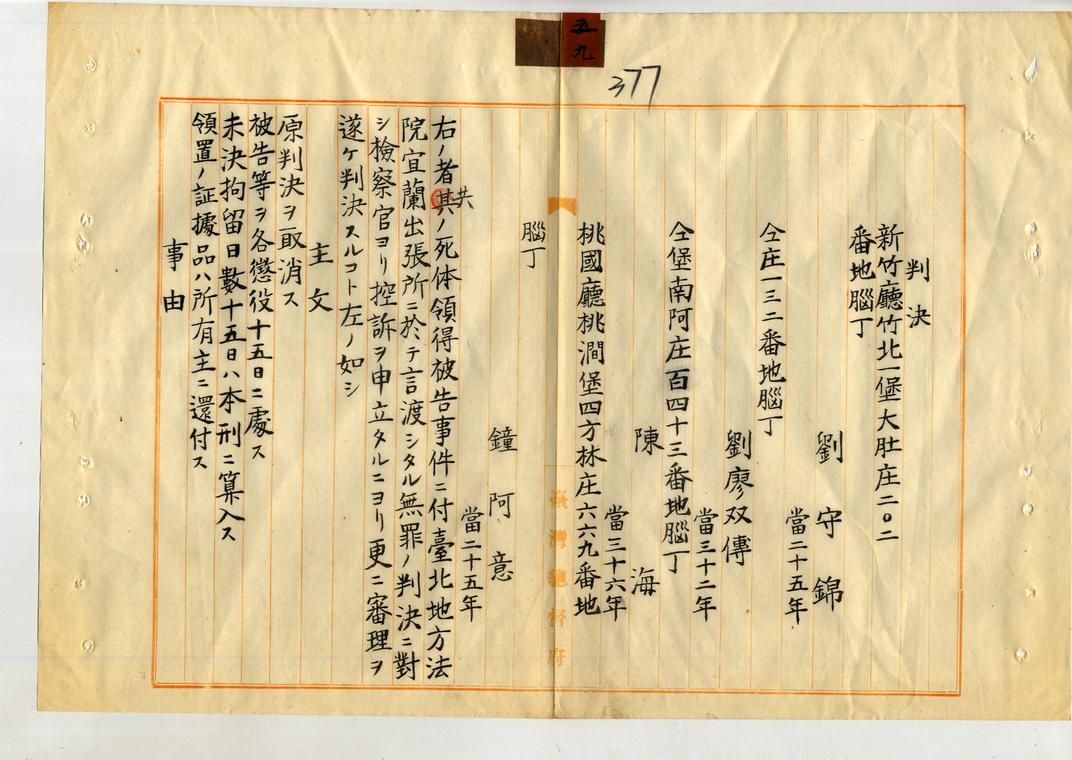 五九
377
判決
新竹廳竹北一堡大肚庄二〇二
番地腦丁
劉守錦
當二十五年
仝庄一三二番地腦丁
劉廖双傳
當三十二年
仝堡南阿庄百四十三番地腦丁
陳海
當三十六年
桃國廳桃澗堡四方林庄六六九番地
臺灣總督府
腦丁
鐘阿意
當二十五年
右ノ者其共ノ死体領得被告事件ニ付臺北地方法
院宜蘭出張所ニ於テ言渡シタル無罪ノ判決ニ對
シ檢察官ヨリ控訴ヲ申立タルニヨリ更ニ審理ヲ
遂ケ判決スルコト左ノ如シ
主文
原判決ヲ取消ス
被告等ヲ各懲役十五日ニ處ス
未決拘留日數十五日ハ本刑ニ算入ス
領置ノ証據品ハ所有主ニ還付ス
事由